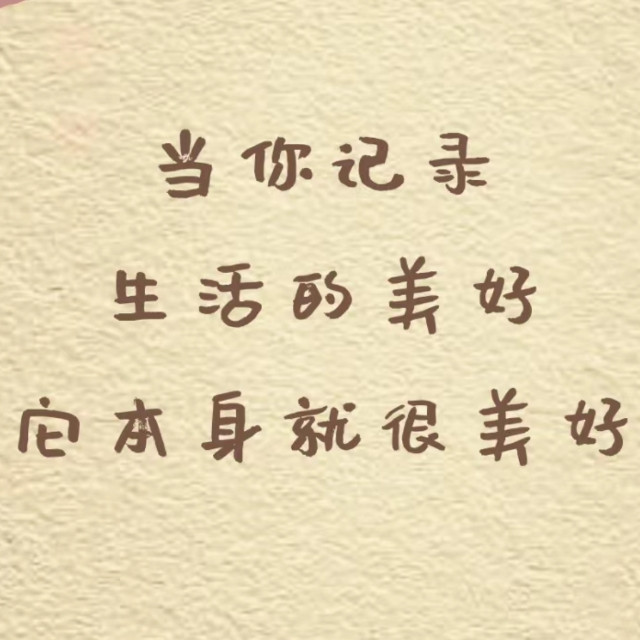 当你记录
生活的美好
它本身就很美好